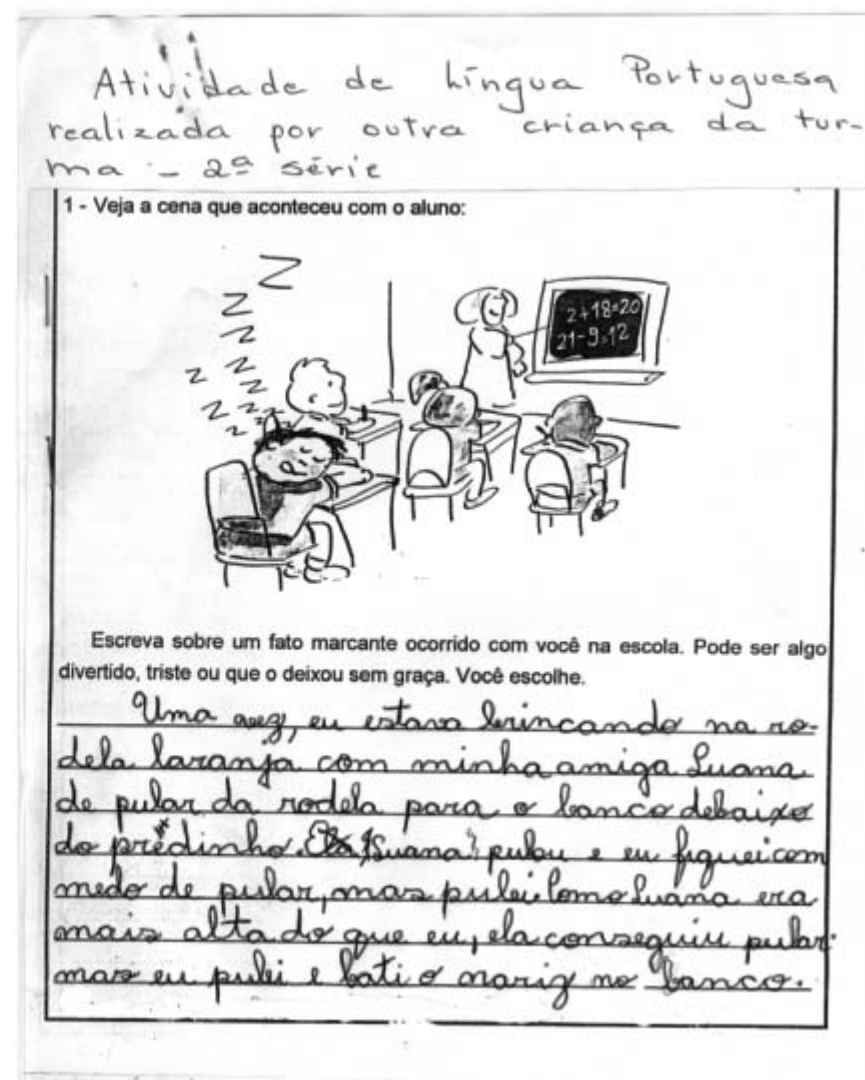 Atividade de Língua Portuguesa
realizada por outra criança da tur-
ma - 2ª série
1 - Veja a cena que aconteceu com o aluno:
Z
Z
Z
Z
Z
Z
Z
Z
Z
Z
2+18=20
21-9=12
Escreva sobre um fato marcante ocorrido com você na escola. Pode ser algo
divertido, triste ou que o deixou sem graça. Você escolhe.
Uma vez, eu estava brincando na ro-
dela laranja com minha amiga Luana
de pular da rodela para o banco debaixo
do prédinho. Luana pulou e eu fiquei com
medo de pular, mas pulei. Como Luana era
mais alta do que eu, ela conseguiu pular
mas eu pulei e bati o nariz no banco.